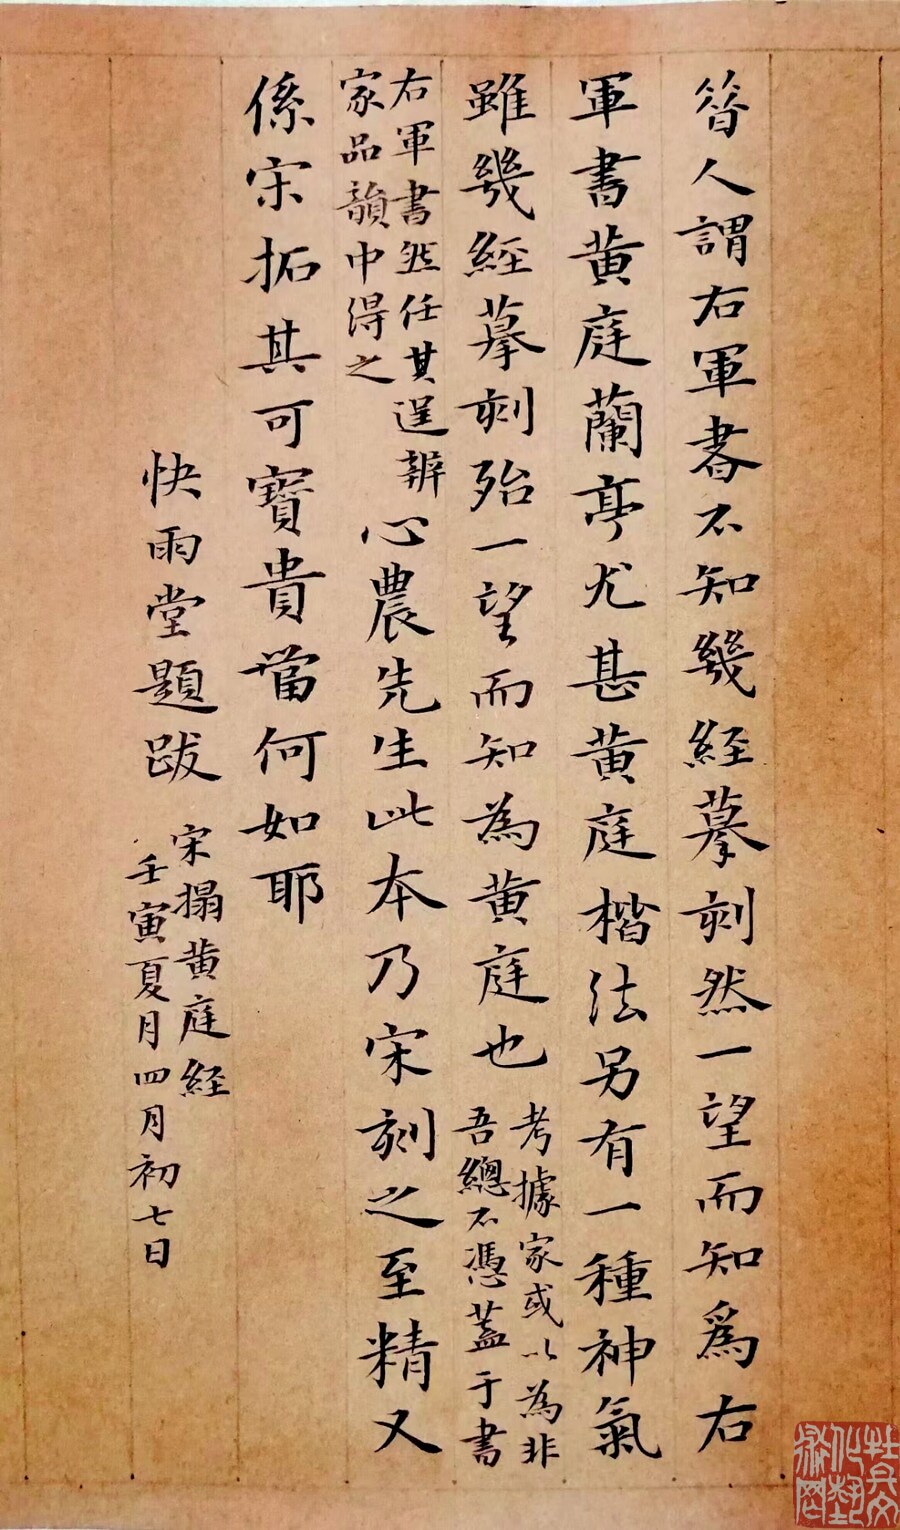 昝人謂右軍書不知幾經摹刻然一望而知為右
軍書黄庭蘭亭尤甚黄庭楷法另有一種神氣
雖幾經摹刻殆一望而知為黄庭也
考據家或以為非
吾總不憑蓋于書
右軍書然任其逞辨
家品韻中得之
心農先生此本乃宋刻之至精又
係宋拓其可寶貴當何如耶
快雨堂題跋
宋搨黄庭経
壬寅夏月四月初七日